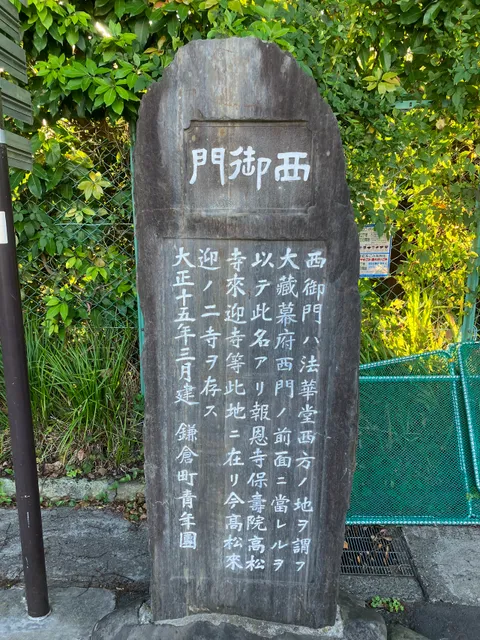 西御門
西御門ハ法華堂西方ノ地ヲ謂フ
大藏幕府西門ノ前面ニ當レルヲ
以テ此名アリ報恩寺保壽院高松
寺來迎寺等此地ニ在リ今高松來
迎ノ二寺ヲ存ス
大正十五年三月建 鎌倉町青年團